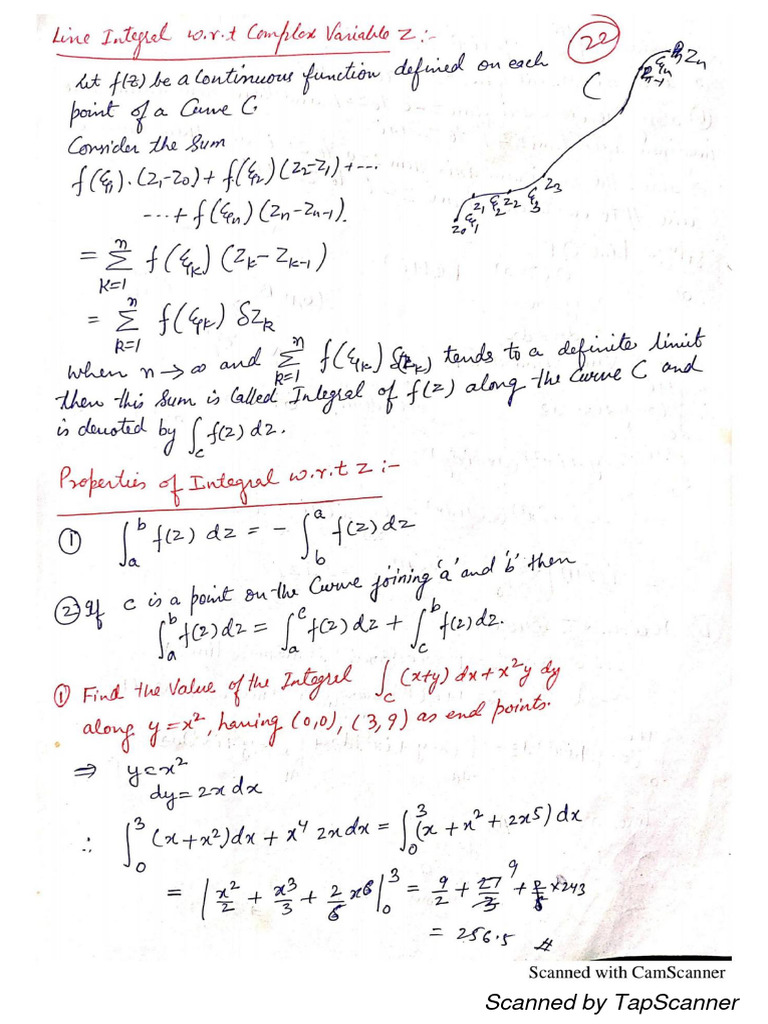 Line Integral w.r.t Complex Variable z :-
22
Let f(z) be a continuous function defined on each
point of a Curve C.
Consider the Sum
f(ξ1).(z1-z0) + f(ξ2)(z2-z1) + ...
... + f(ξn)(zn-zn-1).
= n Σ k=1 f(ξk)(zk-zk-1)
= n Σ k=1 f(ξk) δzk
C
z0 ξ1 z1 ξ2 z2 ξ3 z3
zn-1 ξn zn
When n→∞ and n Σ k=1 f(ξk) δ(zk) tends to a definite limit
then this Sum is called Integral of f(z) along the Curve C and
is denoted by ∫c f(z) dz.
Properties of Integral w.r.t z :-
① ∫_a^b f(z) dz = - ∫_b^a f(z) dz
② If c is a point on the Curve joining 'a' and 'b' then
∫_a^b f(z) dz = ∫_a^c f(z) dz + ∫_c^b f(z) dz.
① Find the Value of the Integral ∫_c (x+y) dx + x²y dy
along y = x², having (0,0), (3,9) as end points.
⇒ y = x²
dy = 2x dx
∴ ∫_0^3 (x+x²)dx + x⁴ 2x dx = ∫_0^3 (x + x² + 2x⁵) dx
= | x²/2 + x³/3 + 2/6 x⁶ |_0^3 = 9/2 + 27/3 9 + 2/6 × 243
= 256.5 #
Scanned with CamScanner
Scanned by TapScanner